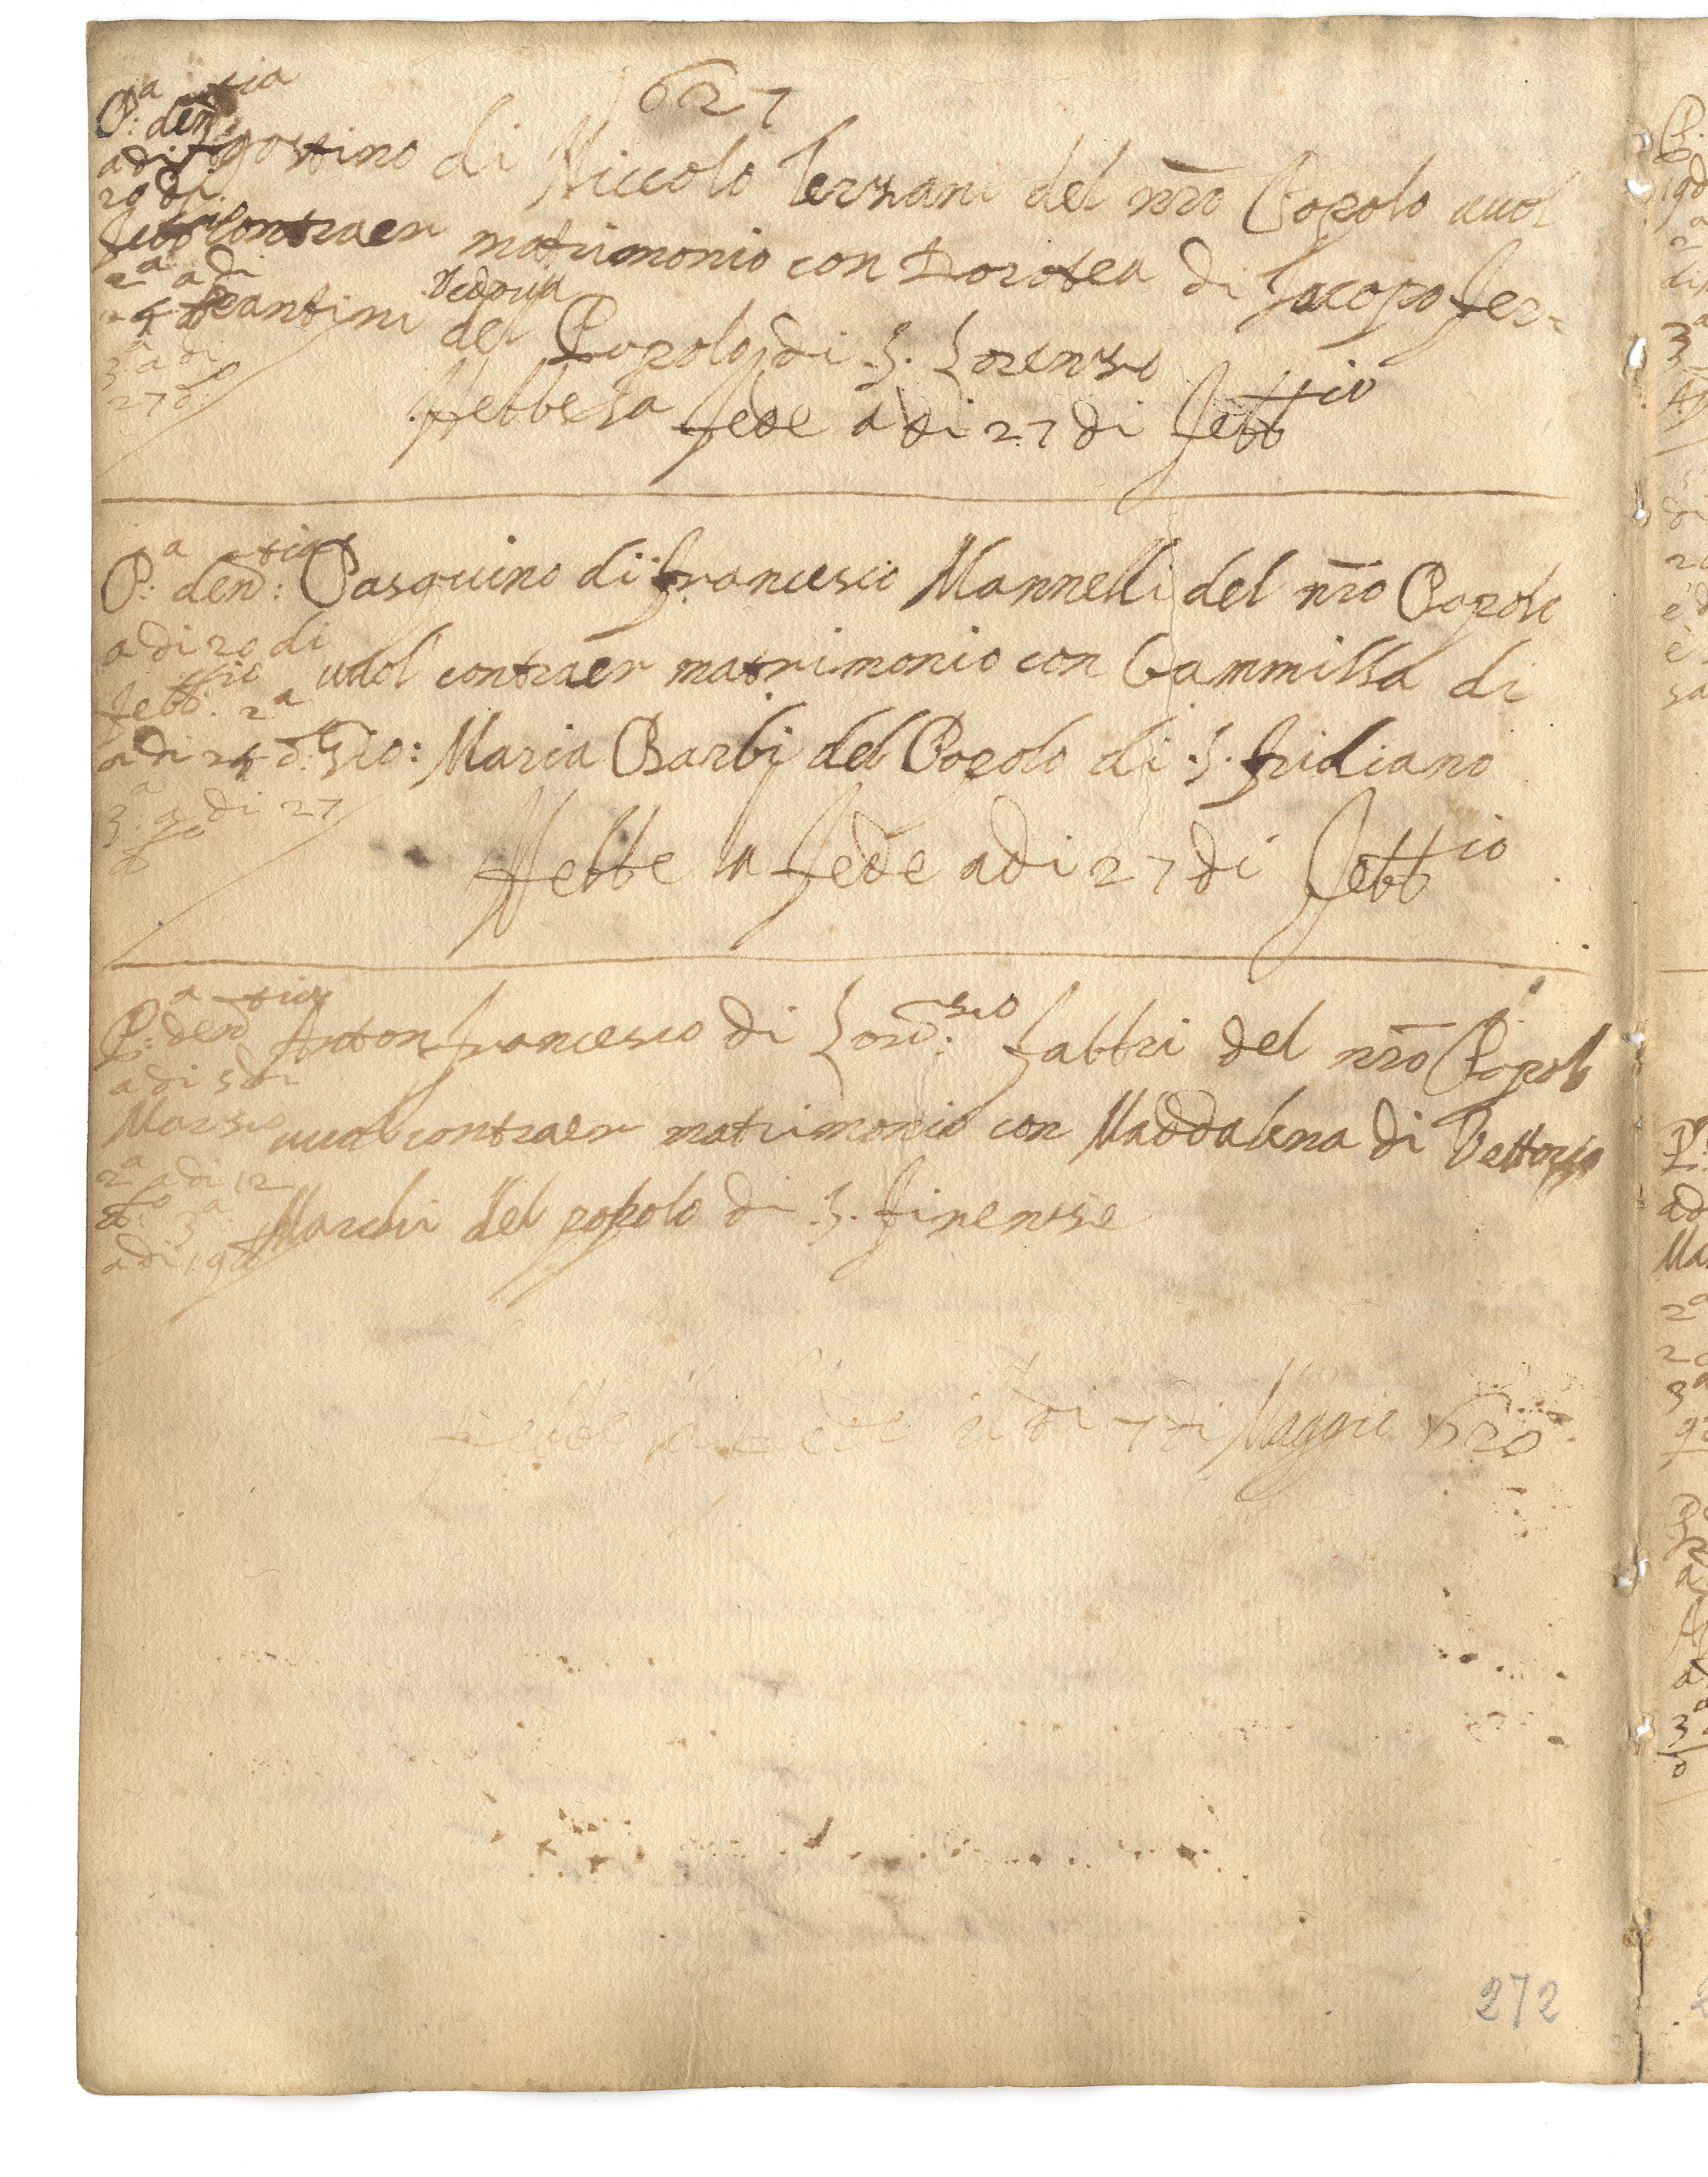 627
P.a den.tia
adi
20 di
Febb.io
2.a adi
3.a adi
27 d.o
Agostino di Niccolo Terzani del nro Popolo vuol
contraer matrimonio con Dorotea di Jacopo Fer-
rantini Vedova del Popolo di S. Lorenzo
Hebbe la fede adi 27 di Febb.io
P.a den.tia:
adi 20 di
Febb.io 2.a
adi 24 d.o
3.a adi 27
d.o
Pasquino di Francesco Mannelli del nro Popolo
vuol contraer matrimonio con Cammilla di
Gio: Maria Barbi del Popolo di S. Fridiano
Hebbe la fede adi 27 di Febb.io
P.a den.tia
adi 5 di
Marzo
2.a adi 12
d.o 3.a
adi 19 d.o
Anton francesco di Lor.zo Fabbri del nro Popolo
vuol contraer matrimonio con Maddalena di Vettorio
Marchi del popolo di S. Firenenze
Hebbe la fede adi 7 di Maggio 620
272